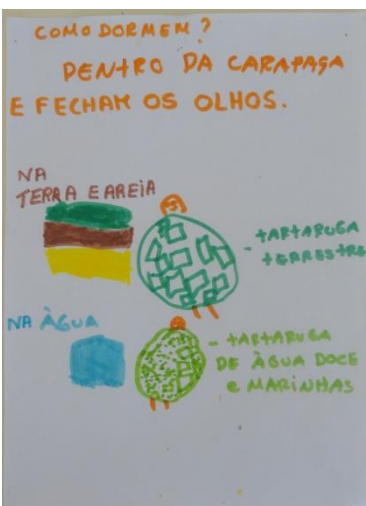 COMO DORMEM?
DENTRO DA CARAPAÇA
E FECHAM OS OLHOS.
NA
TERRA E AREIA
- TARTARUGA
TERRESTRE
NA ÀGUA
- TARTARUGA
DE ÀGUA DOCE
e MARINHAS